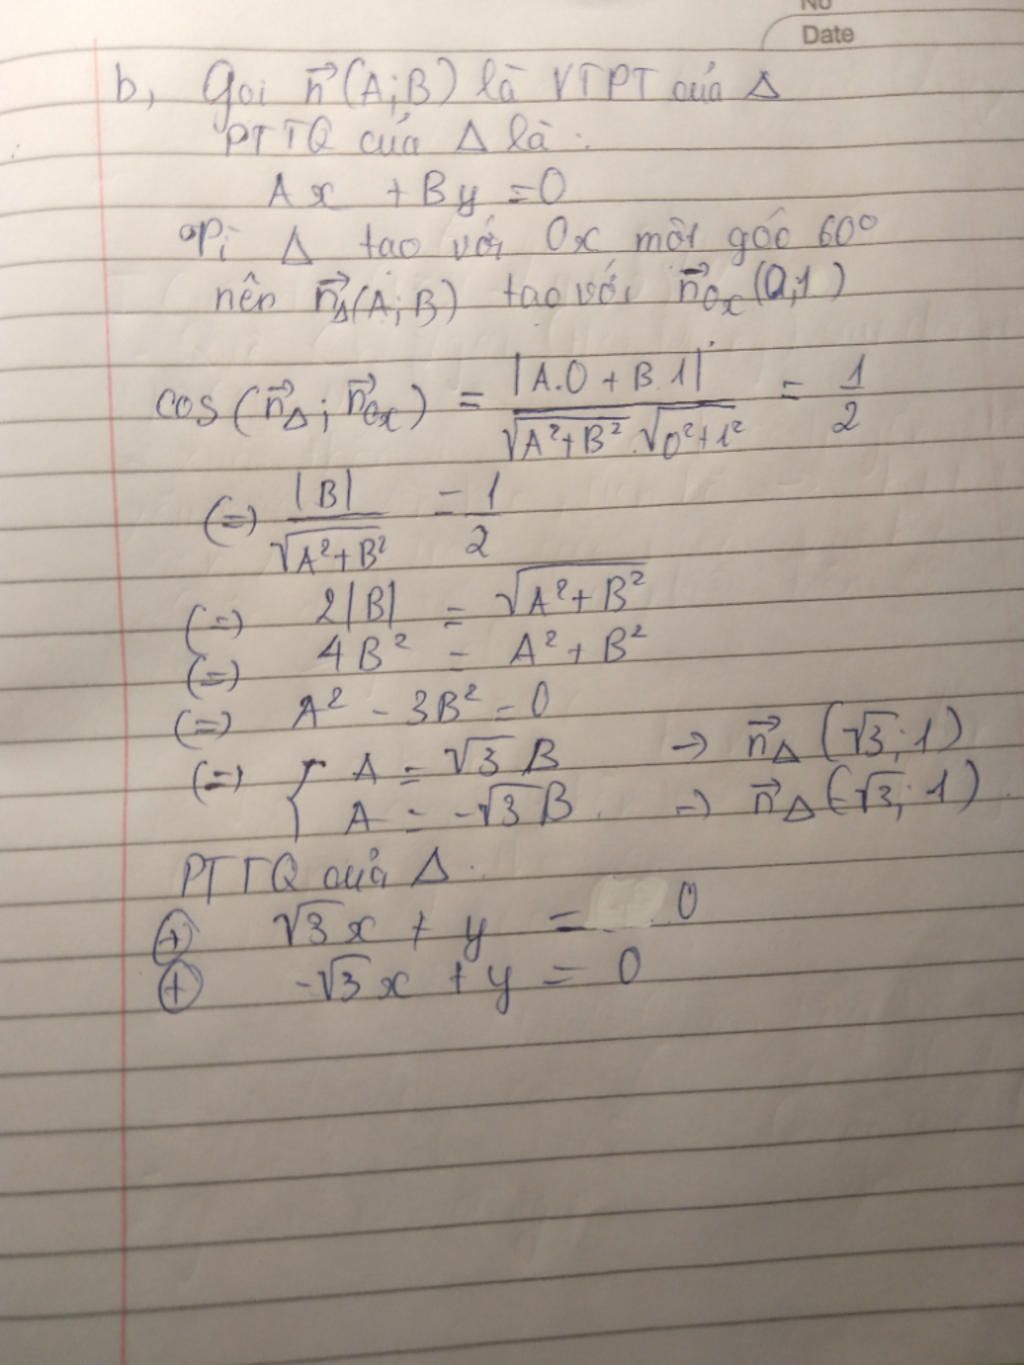 No
Date
b, Gọi n⃗(A;B) là VTPT của Δ
PTTQ của Δ là :
Ax + By = 0
Vì Δ tạo với Ox một góc 60°
nên n⃗Δ(A;B) tạo với n⃗Ox(0;1)
cos(n⃗Δ; n⃗Ox) = |A.0 + B.1| / √A²+B² . √0²+1² = 1/2
(=) |B| / √A²+B² = 1/2
(=) 2|B| = √A²+B²
(=) 4B² = A² + B²
(=) A² - 3B² = 0
(=) { A = √3 B → n⃗Δ (√3; 1)
A = -√3 B → n⃗Δ (-√3; 1)
PTTQ của Δ :
⊕ √3x + y = 0
⊕ -√3x + y = 0